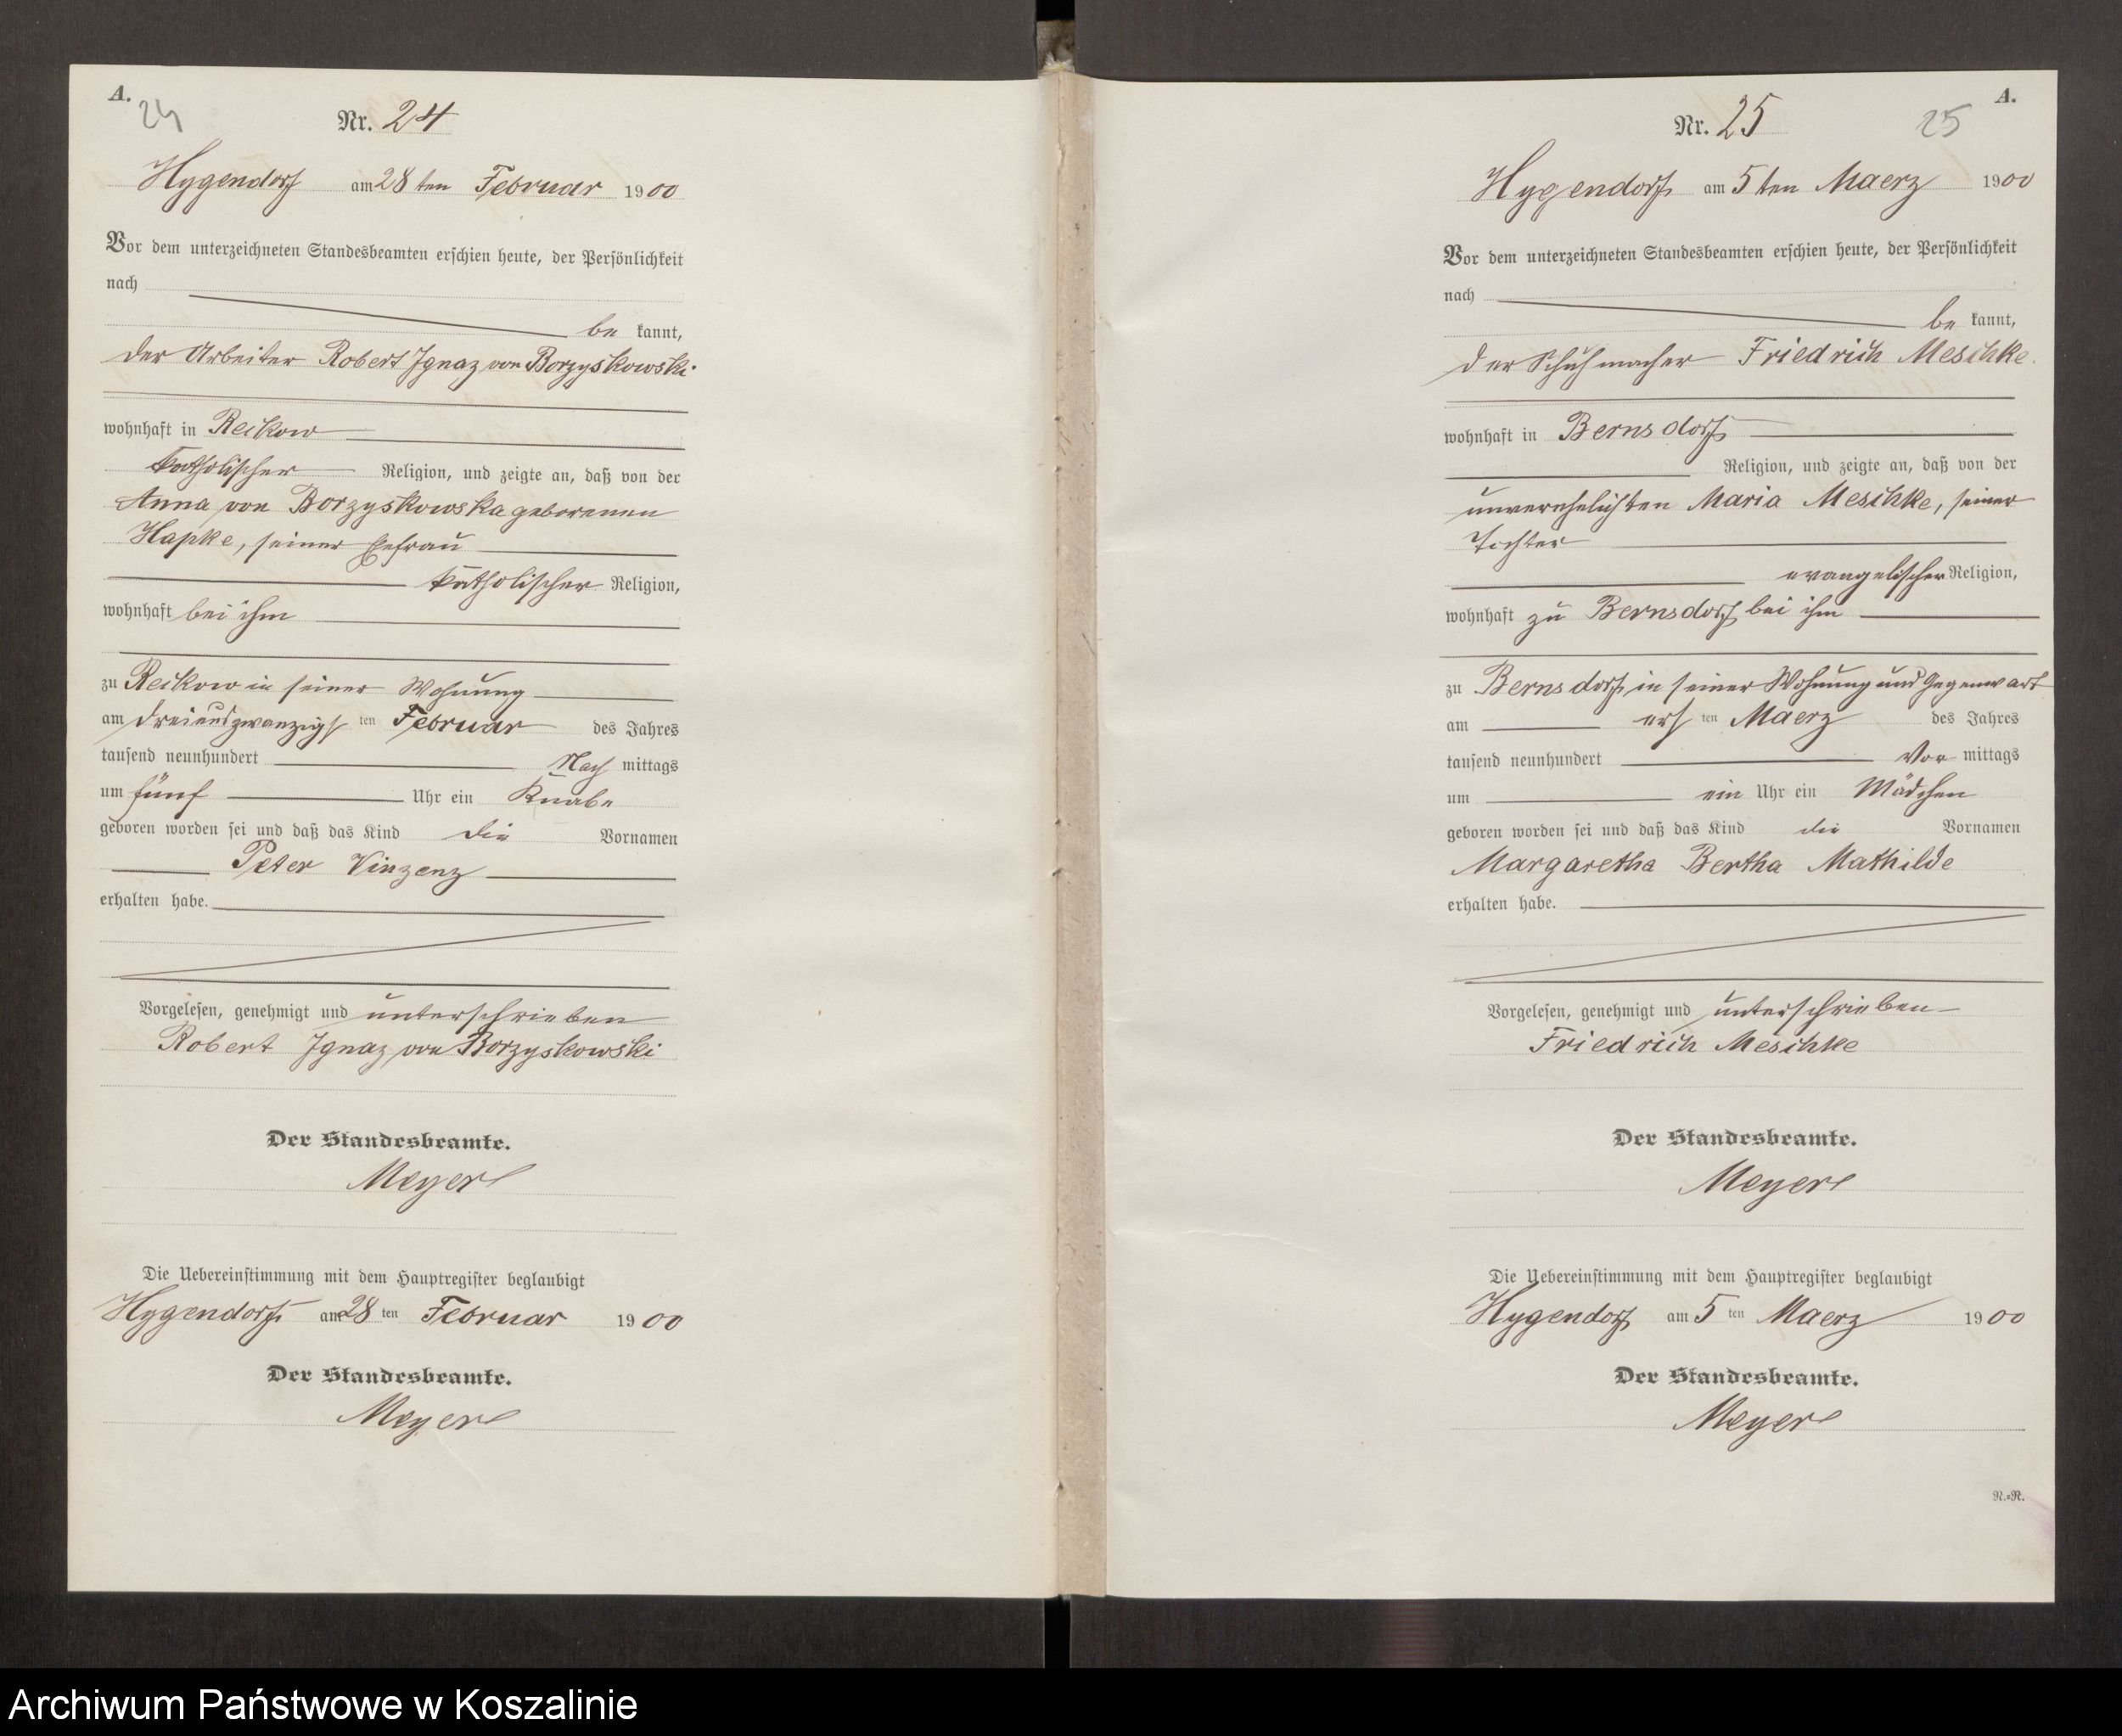 A.
24
Nr. 24
Hygendorf am 28 ten Februar 1900
Vor dem unterzeichneten Standesbeamten erschien heute, der Persönlichkeit
nach
be kannt,
der Arbeiter Robert Ignaz von Borzyskowski
wohnhaft in Reikow
katholischer Religion, und zeigte an, daß von der
Anna von Borzyskowska geborenen
Hapke, seiner Ehefrau
katholischer Religion,
wohnhaft bei ihm
zu Reikow in seiner Wohnung
am dreiundzwanzigs ten Februar des Jahres
tausend neunhundert Nach mittags
um fünf Uhr ein Knabe
geboren worden sei und daß das Kind die Vornamen
Peter Vinzenz
erhalten habe.
Vorgelesen, genehmigt und unterschrieben
Robert Ignaz von Borzyskowski
Der Standesbeamte.
Meyer
Die Uebereinstimmung mit dem Hauptregister beglaubigt
Hygendorf am 28 ten Februar 1900
Der Standesbeamte.
Meyer
A.
25
Nr. 25
Hygendorf am 5 ten Maerz 1900
Vor dem unterzeichneten Standesbeamten erschien heute, der Persönlichkeit
nach
be kannt,
der Schuhmacher Friedrich Meschke
wohnhaft in Bernsdorf
Religion, und zeigte an, daß von der
unverehelichten Maria Meschke, seiner
Tochter
evangelischer Religion,
wohnhaft zu Bernsdorf bei ihm
zu Bernsdorf in seiner Wohnung und Gegenwart
am ers ten Maerz des Jahres
tausend neunhundert Vor mittags
um ein Uhr ein Mädchen
geboren worden sei und daß das Kind die Vornamen
Margaretha Bertha Mathilde
erhalten habe.
Vorgelesen, genehmigt und unterschrieben
Friedrich Meschke
Der Standesbeamte.
Meyer
Die Uebereinstimmung mit dem Hauptregister beglaubigt
Hygendorf am 5 ten Maerz 1900
Der Standesbeamte.
Meyer
N.=R.
Archiwum Państwowe w Koszalinie